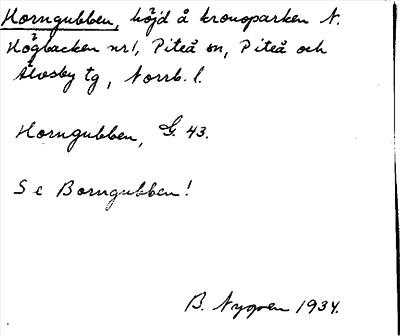 Horngubben, höjd å kronoparken N.
Högbacken nr 1, Piteå sn, Piteå och
Älvsby tg, Norrb. l.
Horngubben, G. 43.
Se Borngubben!
B. Nygren 1934.